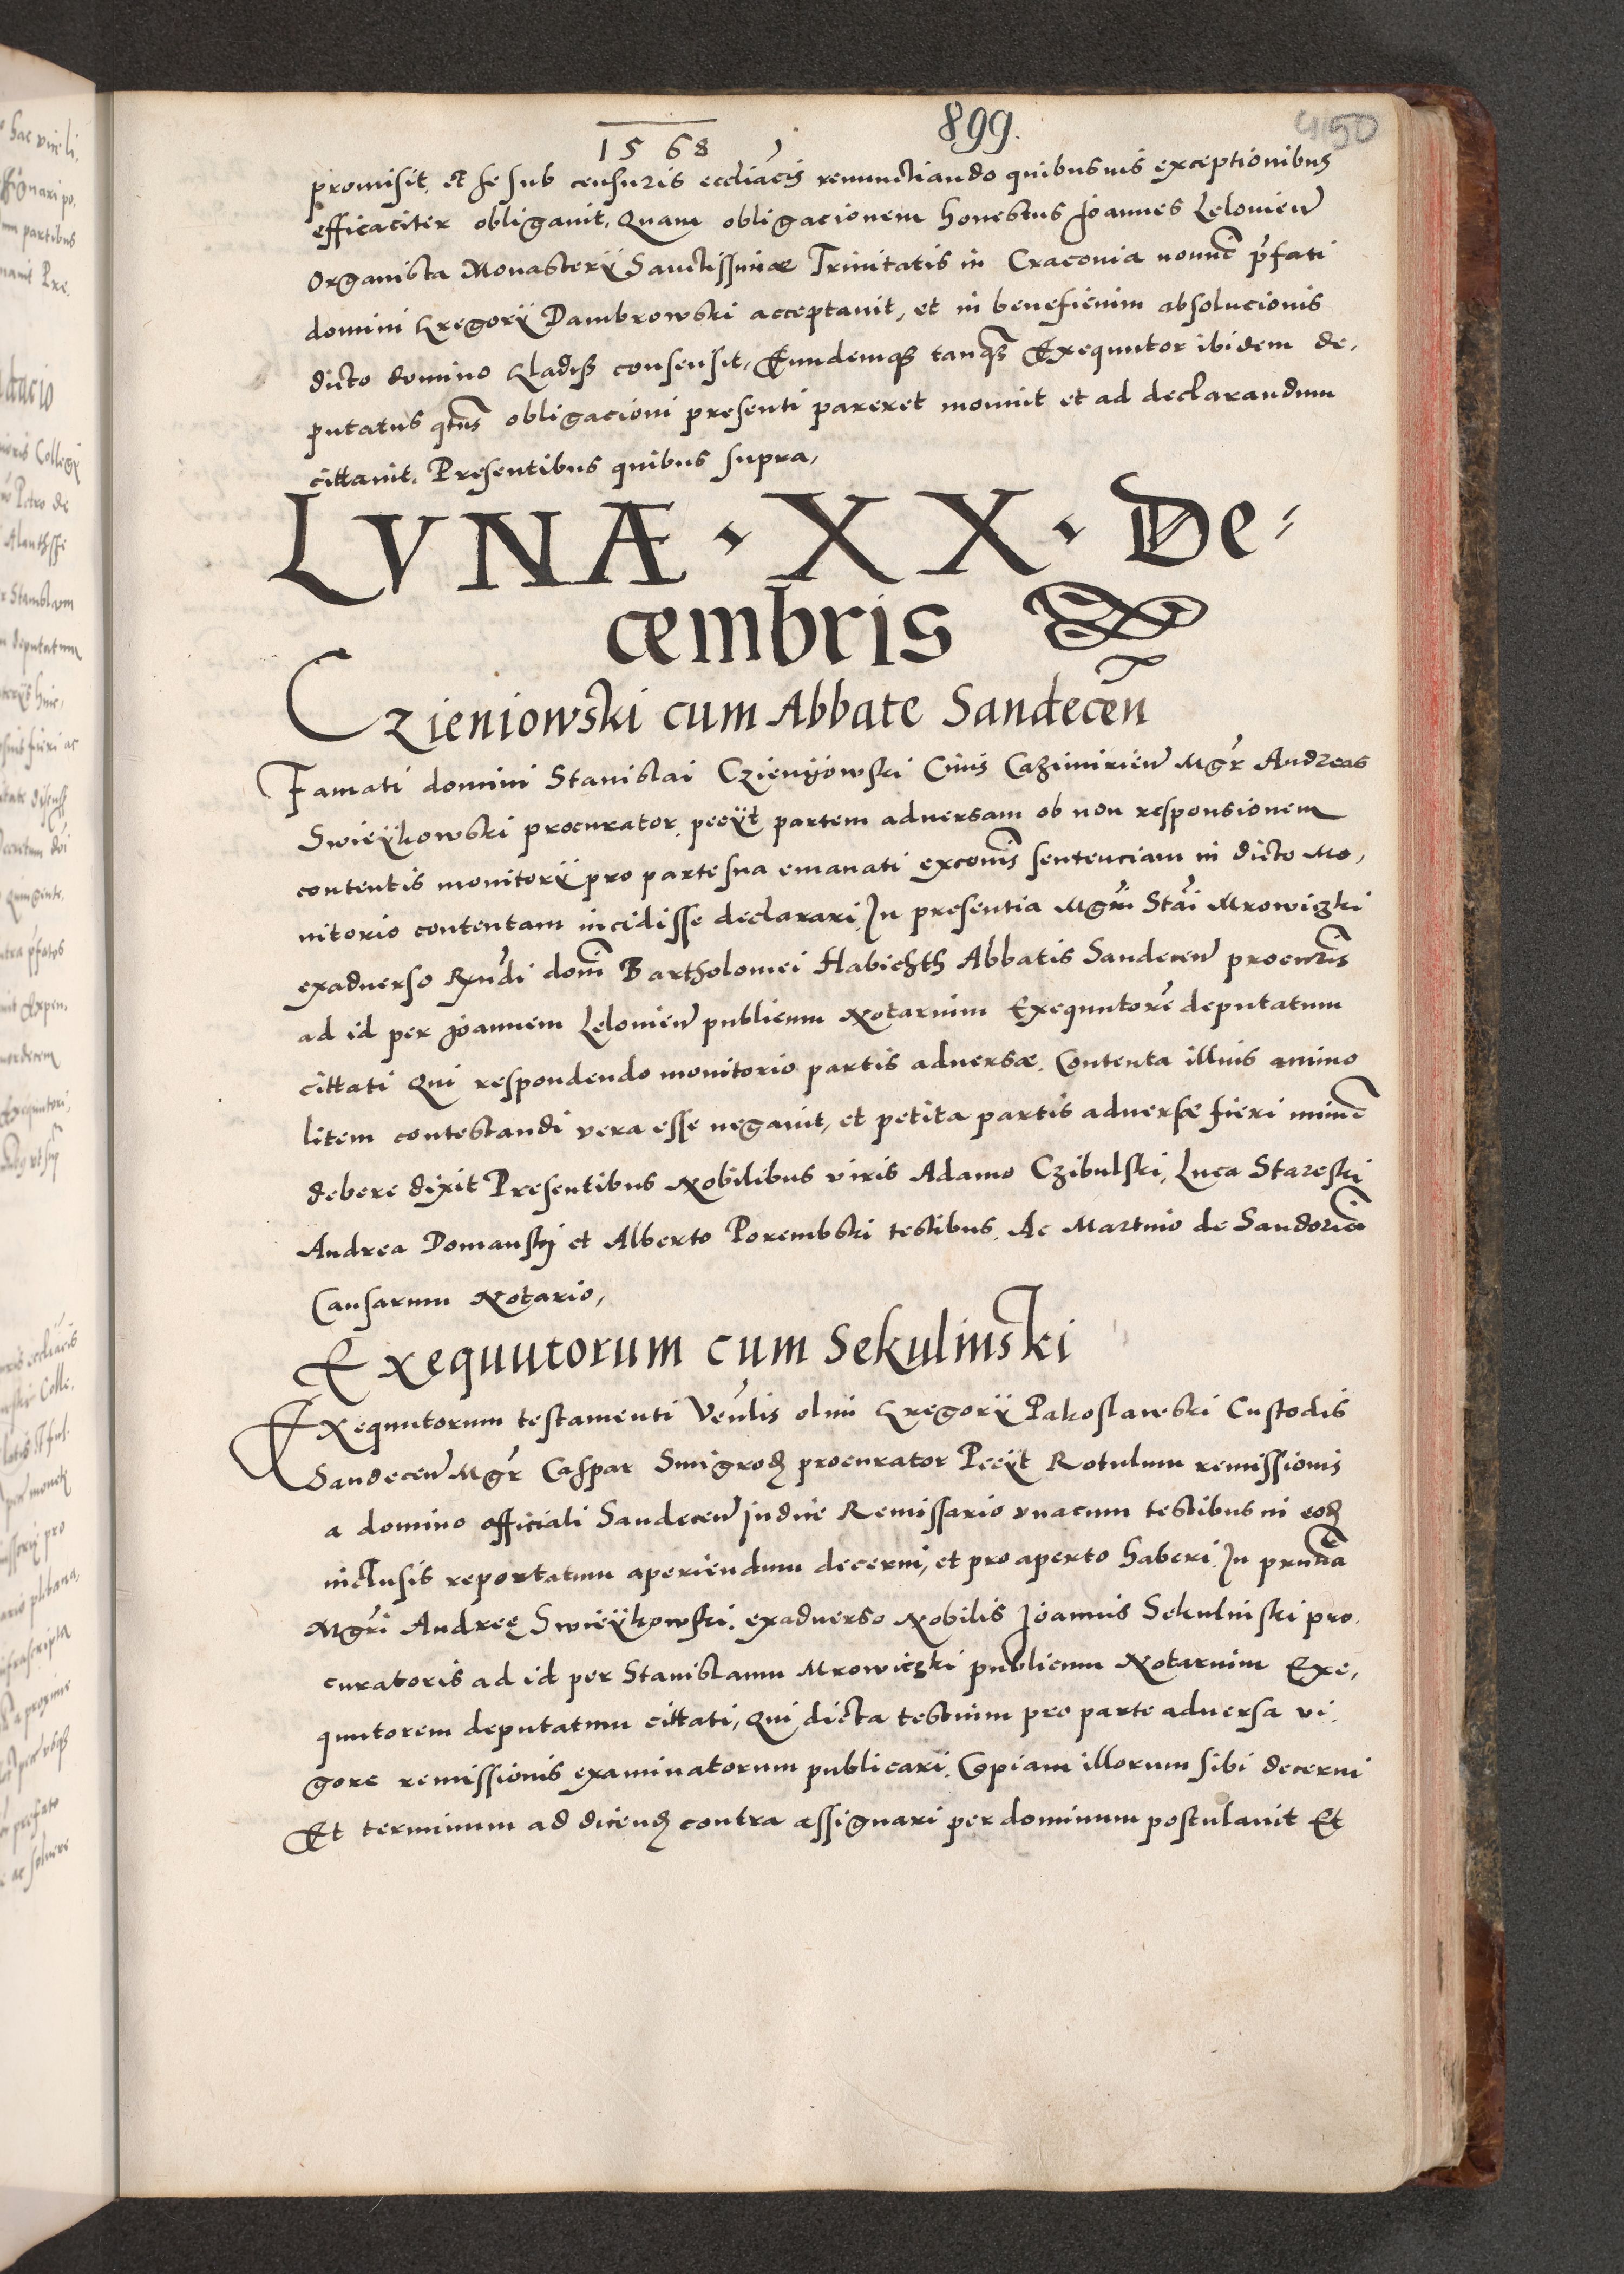 1568
899.
450
promisit, et se sub censuris eccliācis renunctiando quibusuis exceptionibus
efficaciter obligauit, Quam obligacionem honestus Joannes Lelouien
Organista Monasterÿ Sanctissimæ Trinitatis in Cracouia nomīe p̄fati
domini Gregorÿ Dambrowski acceptauit, et in beneficium absolucionis
dicto domino Gladiß consensit, Eundemqȝ tanqȝ Exequutor ibidem de,
putatus qtūs obligacioni presenti pareret monuit et ad declarandum
cittauit, Presentibus quibus supra,
LVNÆ · XX · De,
cembris
Czieniowski cum Abbate Sandecen̄
Famati domini Stanislai Czienÿowski Ciuis Cazimirien Mgr̄ Andreas
Swieÿkowski procurator, peÿt partem aduersam ob non responsionem
contentis monitorÿ pro parte sua emanati excom̄is sentenciam in dicto Mo,
nitorio contentam incidisse declarari, In presentia Mgr̄i Stāi Mrowiczki
exaduerso Rṇdi dom̄i Bartholomei Habichth Abbatis Sandecen procur̄is
ad id per Joannem Lelouien publicum Notarium Exequutorē deputatum
cittati Qui respondendo monitorio partis aduersæ, Contenta illius animo
litem contestandi vera esse negauit, et petita partis aduersæ fieri minīe
debere dixit Presentibus Nobilibus viris Adamo Czibulski, Luca Stareski
Andrea Domanskj et Alberto Porembski testibus, Ac Martino de Sandomīa
Causarum Notario,
Exequutorum cum Sekulinski
Exequutorum testamenti Ven̄lis olim Gregorÿ Pakoslawski Custodis
Sandecen Mgr̄ Caspar Smigroḑ procurator Peÿt Rotulum remissionis
a domino officiali Sandecen Judice Remissario vnacum testibus in eoḑ
inclusis reportatum aperiendum decerni, et pro aperto haberi, In prn̄tia
Mgr̄i Andreę Swieÿkowski, exaduerso Nobilis Joannis Sekulinski pro,
curatoris ad id per Stanislaum Mrowiczki publicum Notarium Exe,
quutorem deputatum cittati, Qui dicta testium pro parte aduersa vi,
gore remissionis examinatorum publicari, Copiam illorum sibi decerni
Et terminum ad dicenḑ contra assignari per dominum postulauit Et